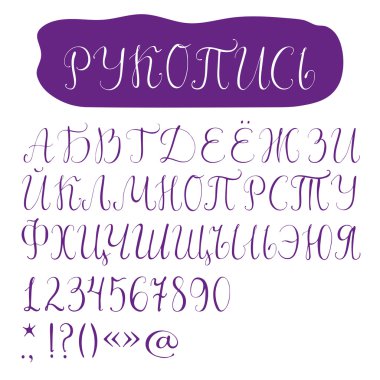 РУКОПИСЬ
АБВГДЕЁЖЗИ
ЙКЛМНОПРСТУ
ФХЦЧШЩЪЫЬЭЮЯ
1234567890
*!?()«»@
.,